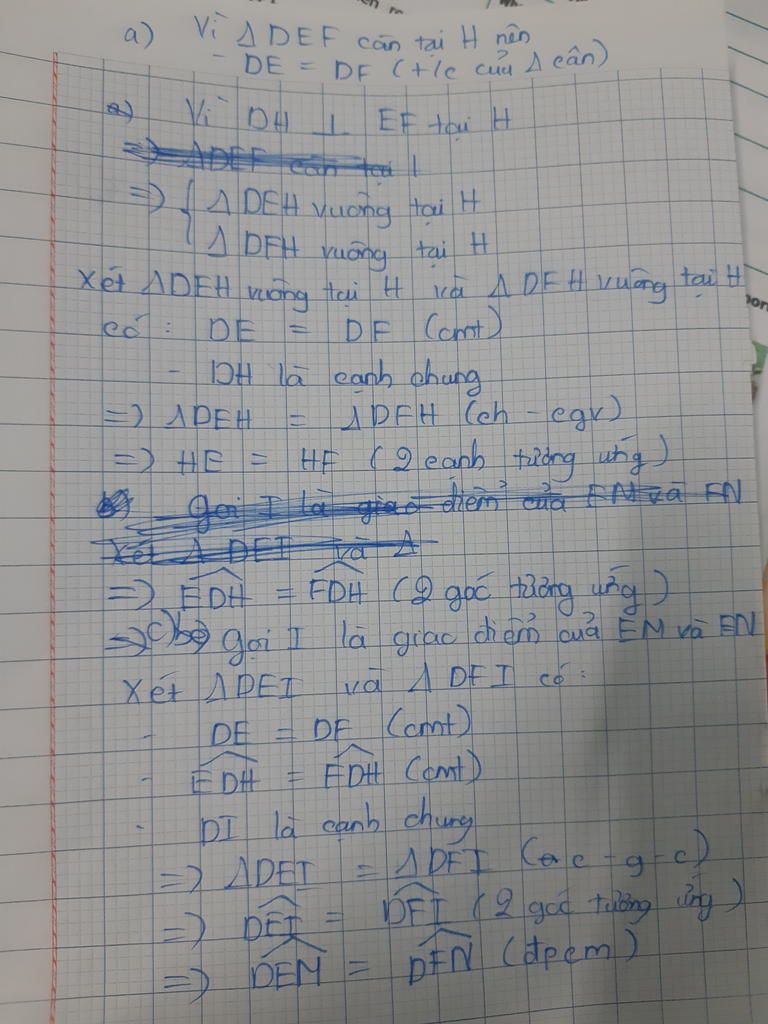 a) Vì Δ DEF cân tại H nên
- DE = DF (t/c của Δ cân)
a) Vì DH ⊥ EF tại H
=> ΔDEF cân tại
=> { Δ DEH vuông tại H
Δ DFH vuông tại H
Xét ΔDEH vuông tại H và Δ DFH vuông tại H
có : DE = DF (cmt)
- DH là cạnh chung
=> ΔDEH = ΔDFH (ch - cgv)
=> HE = HF (2 cạnh tương ứng)
gọi I là giao điểm của EM và FN
Xét Δ DEI và Δ
=> \widehat{EDH} = \widehat{FDH} (2 góc tương ứng)
=> c) b) gọi I là giac điểm của EM và EN
Xét ΔDEI và Δ DFI có :
- DE = DF (cmt)
- \widehat{EDH} = \widehat{FDH} (cmt)
- DI là cạnh chung
=> ΔDEI = ΔDFI (c - g - c)
=> \widehat{DEI} = \widehat{DFI} (2 góc tương ứng)
=> \widehat{DEM} = \widehat{DFN} (đpcm)